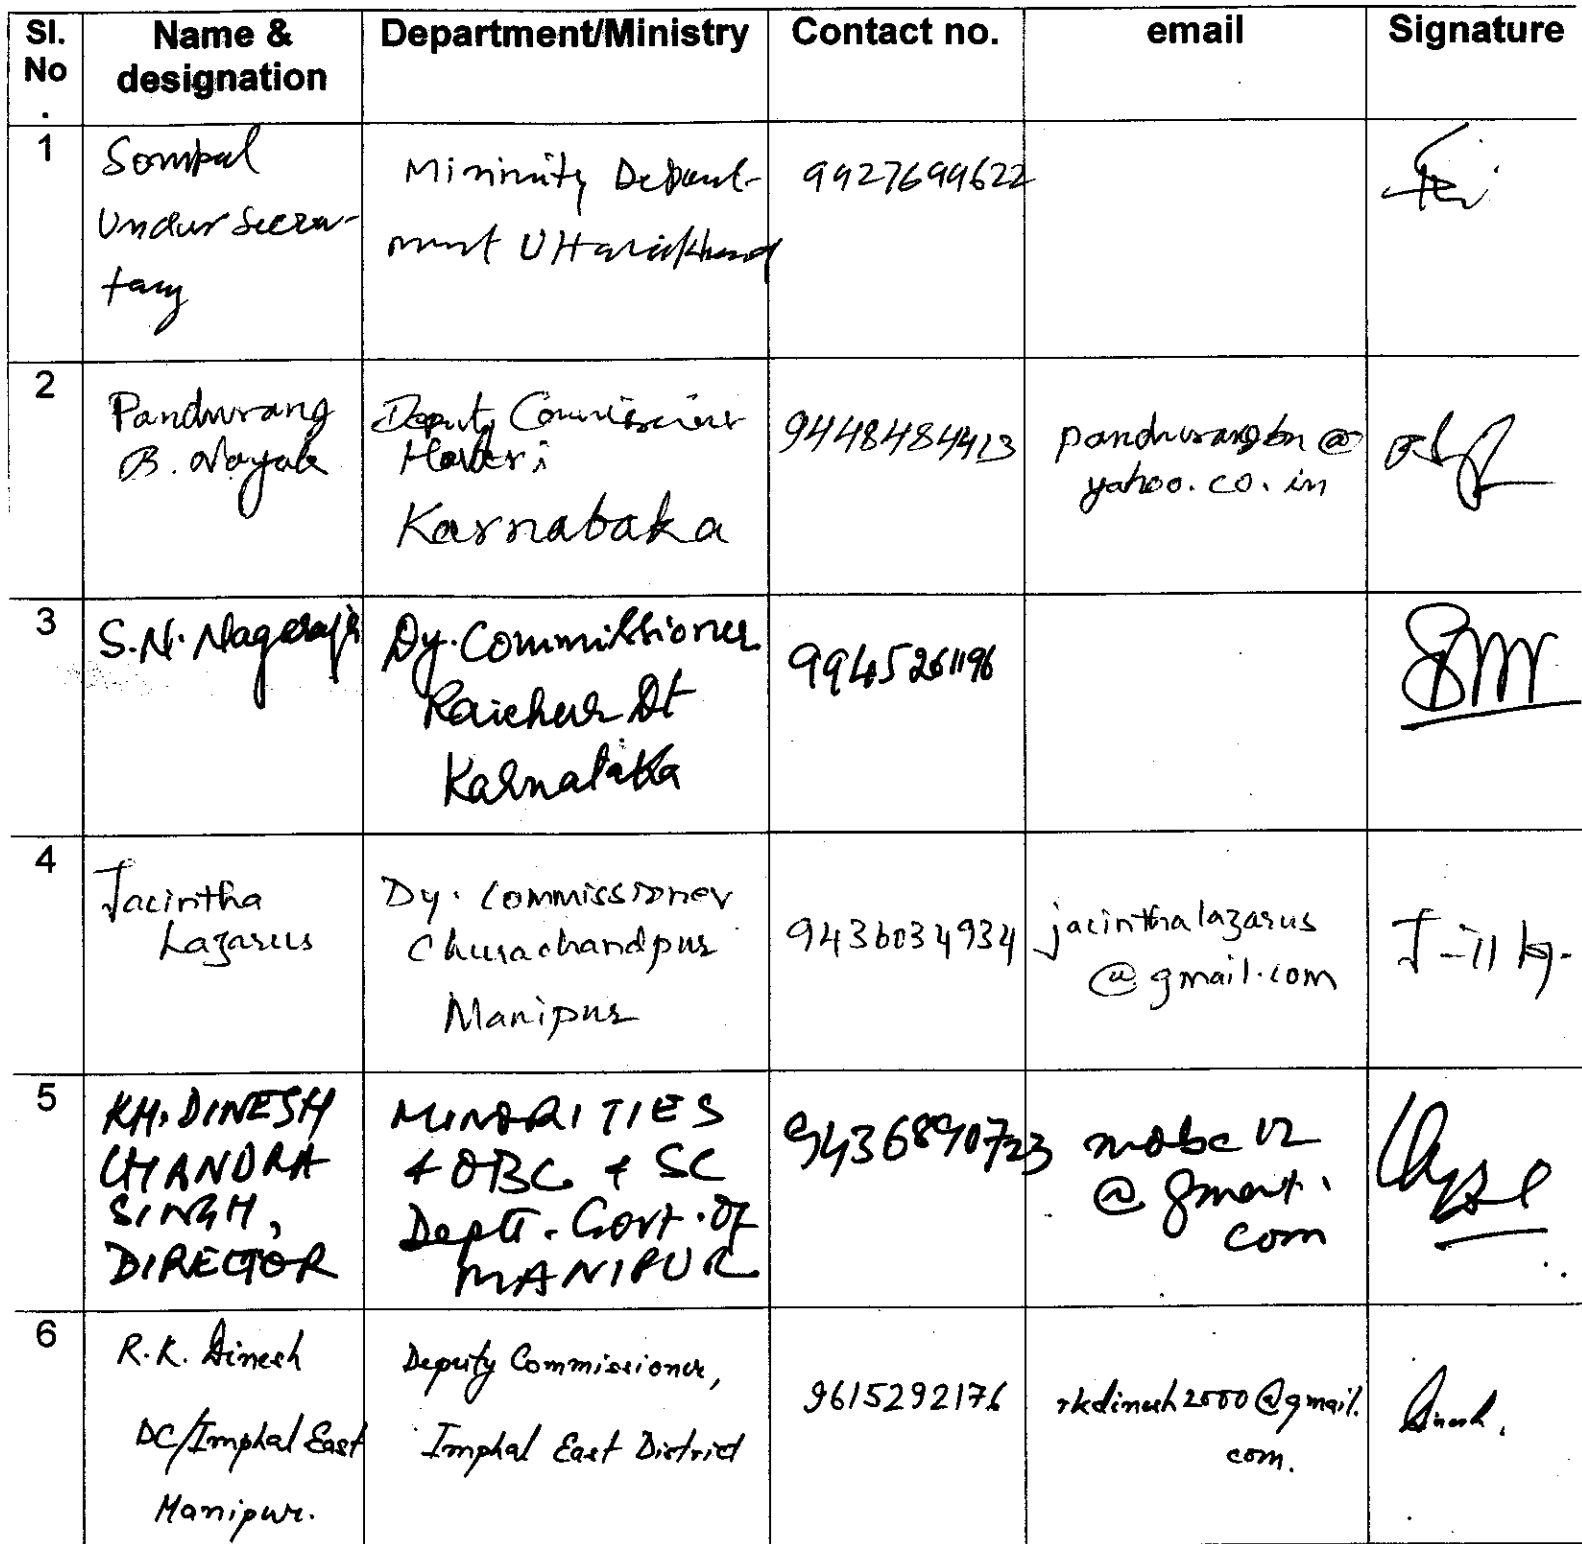 Sl. No . Name & designation Department/Ministry Contact no. email Signature
1
Sompal
Under Secre-
tary
Minority Depart-
ment Uttarakhand
9927699622
2
Pandurang
B. Nayak
Deputy Commissioner
Haveri
Karnataka
9448484413
pandurangbn@
yahoo.co.in
3
S.N. Nagaraju
Dy. Commissioner
Raichur Dt
Karnataka
9945261196
4
Jacintha
Lazarus
Dy. Commissioner
Churachandpur
Manipur
9436034934
jacinthalazarus
@gmail.com
5
KH. DINESH
CHANDRA
SINGH,
DIRECTOR
MINORITIES
& OBC & SC
Deptt. Govt. Of
MANIPUR
9436890723
mobc12
@gmail.
com
6
R.K. Dinesh
DC/Imphal East
Manipur.
Deputy Commissioner,
Imphal East District
9615292176
rkdinesh2000@gmail.
com.
Dinesh.